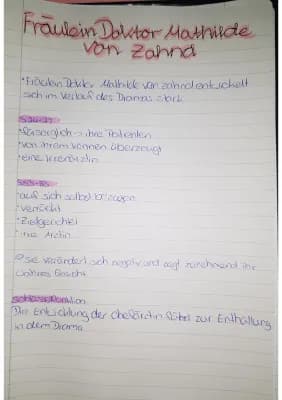 Fräulein Doktor Mathilde
von Zahnd
• Fräulein Doktor Mathilde von Zahnd entwickelt
sich im Verlauf des Dramas stark
• fürsorglich → ihre Patienten
• von ihrem können überzeugt
• eine Irrenärztin
• auf sich selbst bezogen
• verrückt
• Zielgerichtet
• irre Ärztin
sie verändert sich negativ und zeigt zunehmend ihr
wahres Gesicht
Die Entwicklung der Chefärztin führt zur Enthüllung
in dem Drama